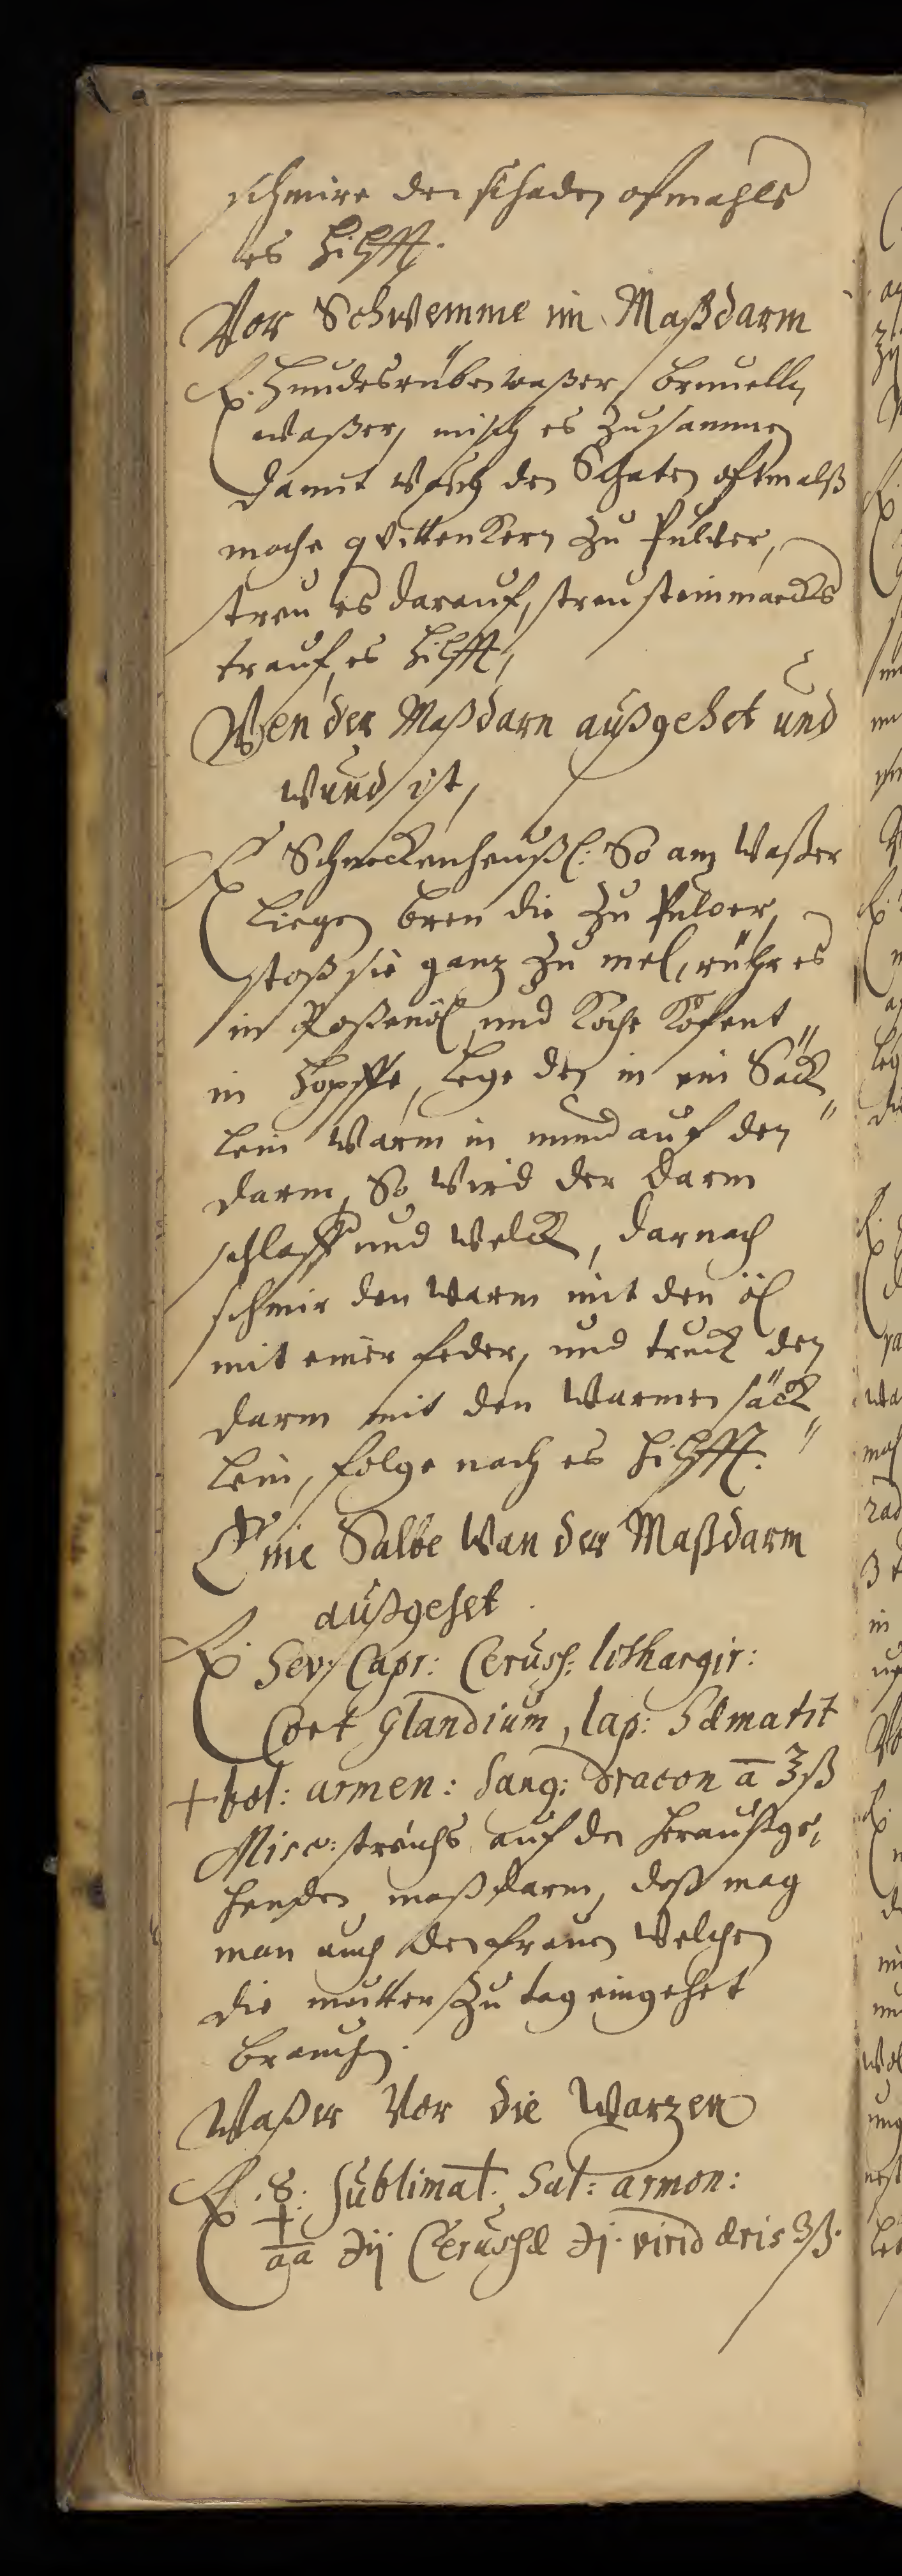 schmire den schaden ofmahls
es hilfft.
Vor Schwemme im Maßdarm
℞. Hundesrüben waßer / Brunelln
waßer, misch es zusammen
damit wasch den Schaten oftmalß
mache qVittenKern zu Pulver,
streu es darauf, streu steinmarcks
trauf, es hilfft,
Wen der Maßdarn außgehet und
wund ist,
℞ Schneckenheußl: So am Waßer
Liegen bren die zu Pulver,
stoß sie ganz zu mel, rühr es
in Roßenöl und Koche Kofent
in Hopffe, Lege den in ein Säck
lein Warm in unnd auf den
darm, So wird der darm
schlaff und welck, darnach
schmir den warm mit den öl
mit einer feder, und truck den
darm mit den Warmen säck
lein, folge nach es hilfft.
Eine Salbe Wan der Maßdarm
außgehet.
℞. Sev: Capr: Ceruss: lithargir:
Cort Glandium, lap: Hæmatit
+ bol: armen: Sang: dracon a ʒß
Misc: streichs auf den heraußge,
henden maßdarm, deß mag
man auch den frauen Welchen
die mutter zu tag eingehet
brauchen.
Waßer Vor die Warzen
℞. Sublimat. Sal: armon:
aa ℈ij Cerussæ ℈j. virid æris ʒß.